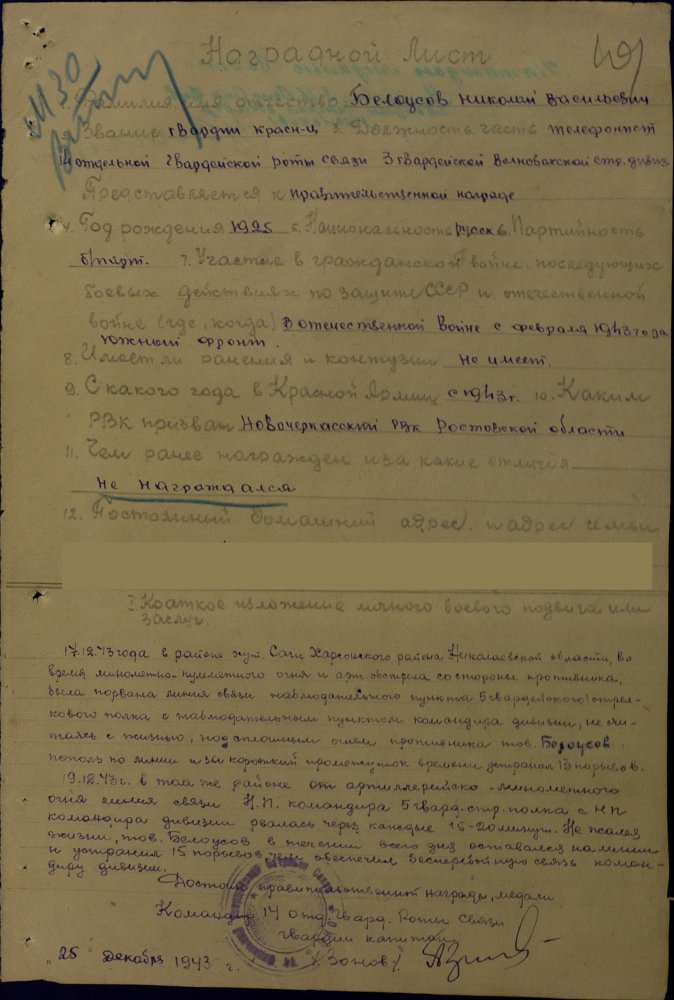 Наградной лист
1. Фамилия, имя, отчество Белоусов Николай Васильевич
2. Звание гвардии красн-ц 3. Должность часть телефонист
14 отдельной Гвардейской роты связи 3 гвардейской Волновахской стр. дивиз.
Представляется к правительственной награде
4. Год рождения 1925 5. Национальность русск 6. Партийность
б/парт. 7. Участие в гражданской войне, последующих
боевых действиях по защите СССР и отечественной
войне (где, когда) В отечественной Войне с февраля 1943 года
Южный фронт.
8. Имеет ли ранения и контузии не имеет.
9. С какого года в Красной Армии с 1943 г. 10. Каким
РВК призван Новочеркасский РВК Ростовской области
11. Чем ранее награжден и за какие отличия
не награждался
12. Постоянный домашний адрес и адрес семьи
I Краткое изложение личного боевого подвига или
заслуг.
17.12.43 года в районе хут. Саги Херсонского района Николаевской области, во
время минометно-пулеметного огня и арт-обстрела со стороны противника,
была порвана линия связи наблюдательного пункта 5 гвардейского стрел-
кового полка с наблюдательным пунктом командира дивизии, не счи-
таясь с жизнью, под сплошным огнем противника тов. Белоусов
пополз по линии и за короткий промежуток времени устранил порывов.
19.12.43 г. в том же районе от артиллерийско-минометного
огня линия связи Н.П. командира 5 гвард. стр. полка с НП
командира дивизии рвалась через каждые 15-20 минут. Не жалея
жизни, тов. Белоусов в течении всего дня оставался на линии
и устранил 15 порывов, обеспечил бесперебойную связь коман-
диру дивизии.
Достоин правительственной награды, медали
Командир 14 отд. Гвард. Роты Связи
гвардии капитан
"25" Декабря 1943 г. / Зонов /